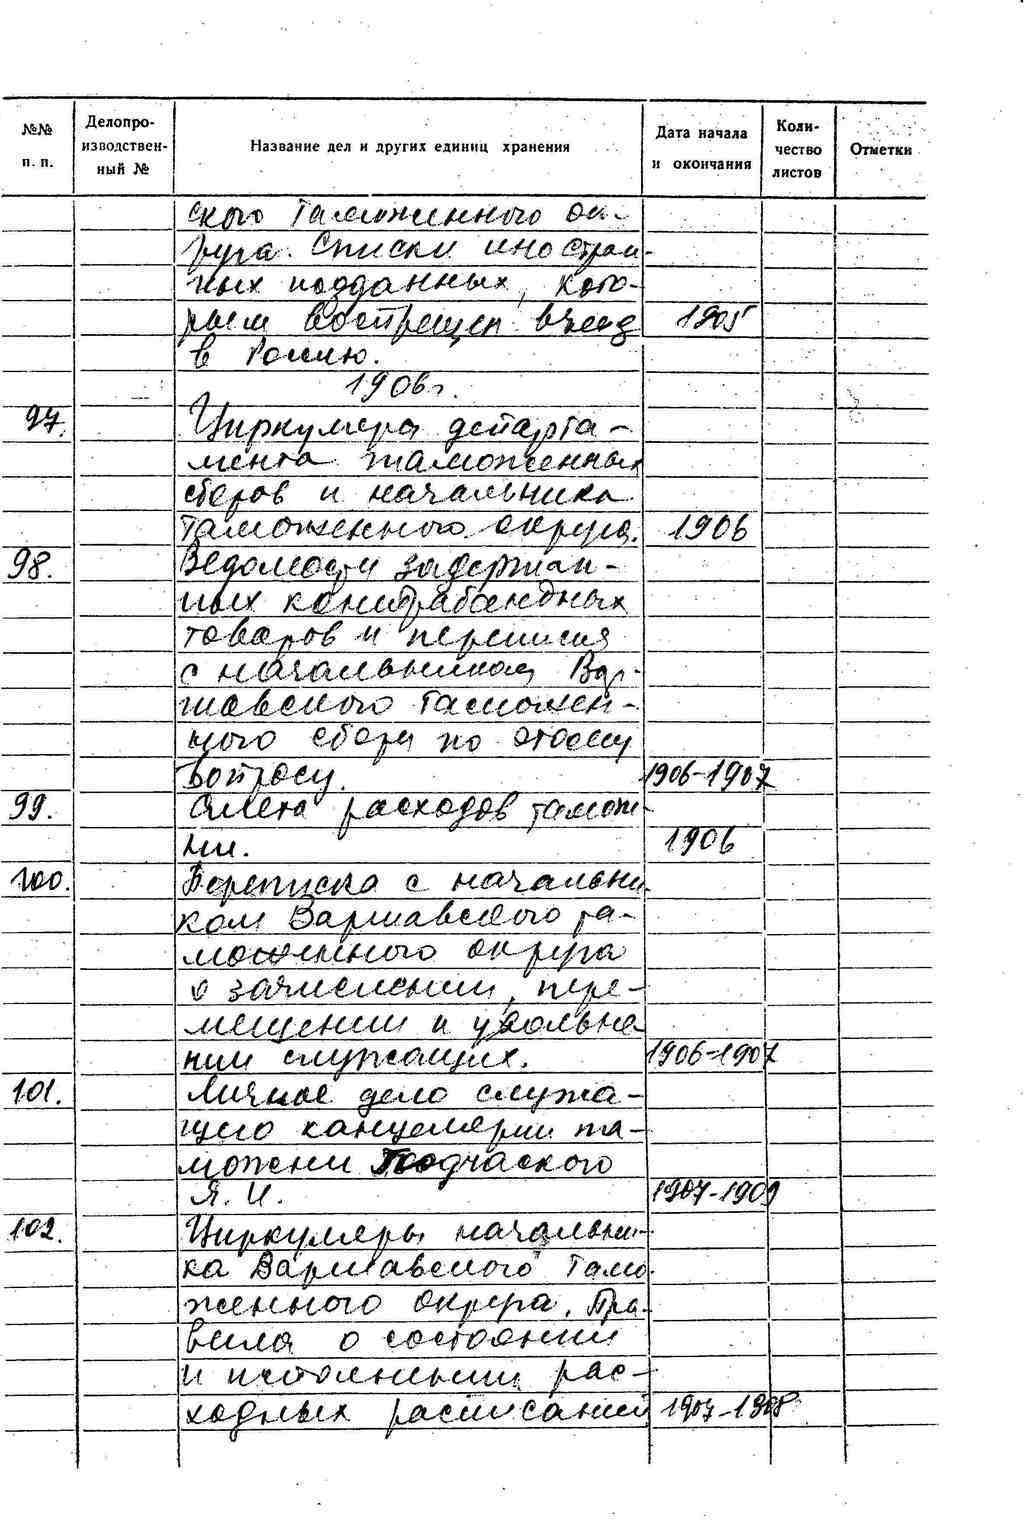 №№ п. п. Делопроизводственный № Название дел и других единиц хранения Дата начала и окончания Количество листов Отметки
ского таможенного ок-
руга. Списки иностран-
ных подданных, кото-
рым воспрещен въезд 1905
в Россию.
1906 г.
97. Циркуляра департа-
мента таможенных
сборов и начальника
таможенного округа. 1906
98. Ведомости задержан-
ных контрабандных
товаров и переписка
с начальником Вар-
шавского таможен-
ного сбора по этому
вопросу. 1906-1907
99. Смета расходов тамож-
ни. 1906
100. Переписка с начальни-
ком Варшавского та-
моженного округа
о зачислении, пере-
мещении и увольне-
нии служащих. 1906-1907
101. Личное дело служа-
щего канцелярии та-
можни Подчаского
Я. И. 1907-1909
102. Циркуляры начальни-
ка Варшавского тамо-
женного округа. Пра-
вила о состоянии
и исполнении рас-
ходных расписаний 1907-1908